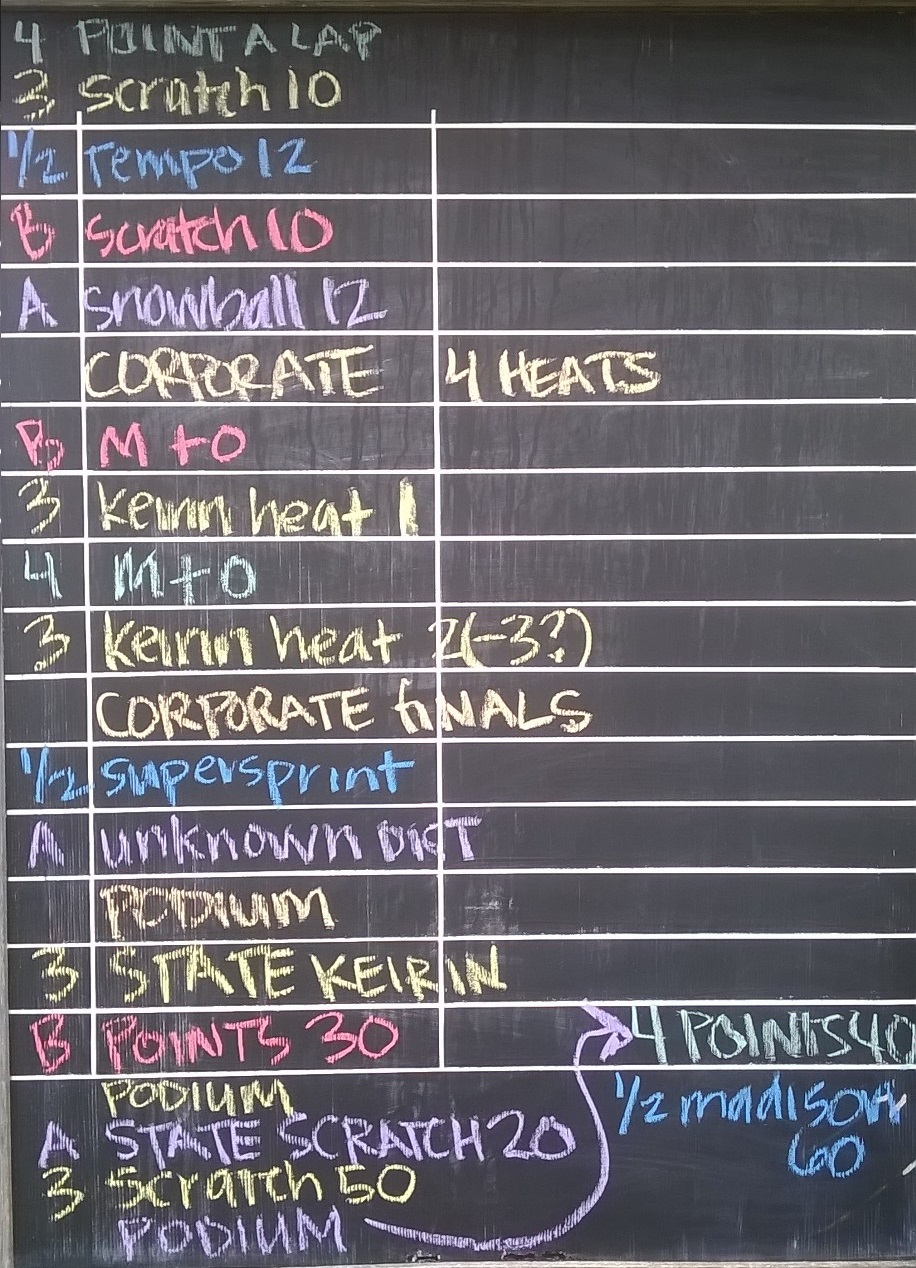 4 POINT A LAP
3 scratch 10
1/2 tempo 12
B scratch 10
A snowball 12
CORPORATE 4 HEATS
B M+O
3 keirin heat 1
4 M+O
3 keirin heat 2(-3?)
CORPORATE fiNALS
1/2 supersprint
A unknown DIST
PODIUM
3 STATE KEIRIN
B POINTS 30
PODIUM
A STATE SCRATCH 20
3 Scratch 50
PODIUM
4 POINTS 40
1/2 madison
60